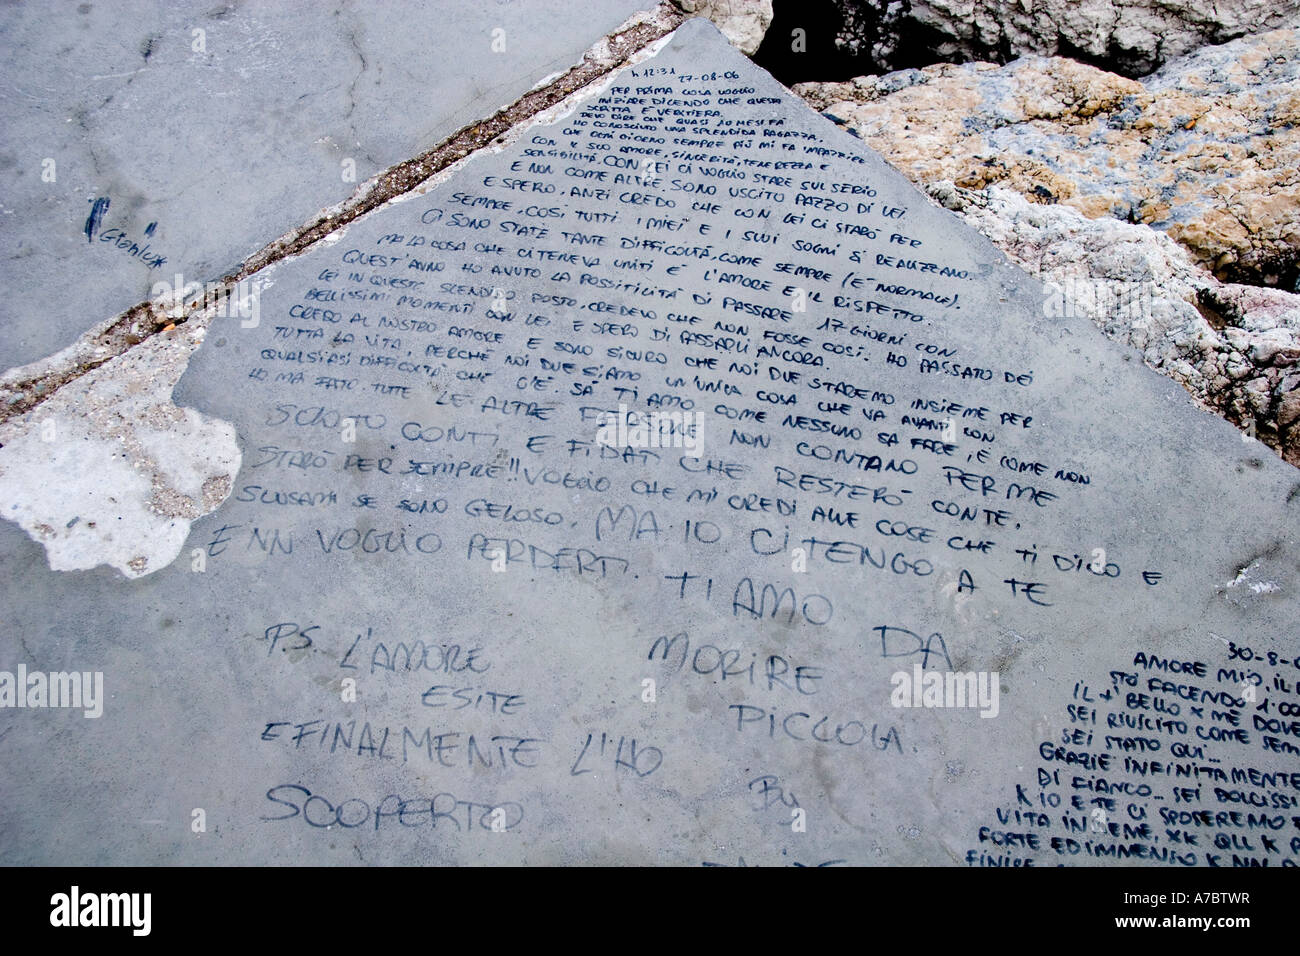 h 12:31 27-08-06
PER PRIMA COSA VOGLIO
INIZIARE DICENDO CHE QUESTA
SCRITTA E' VERITIERA.
DEVO DIRE CHE QUASI 10 MESI FÀ
HO CONOSCIUTO UNA SPLENDIDA RAGAZZA.
CHE OGNI GIORNO SEMPRE PIÙ MI FA IMPAZZIRE
CON IL SUO AMORE, SINCERITÀ, TENEREZZA E
SENSIBILITÀ. CON LEI CI VOGLIO STARE SUL SERIO
E NON COME ALTRE. SONO USCITO PAZZO DI LEI.
E SPERO, ANZI CREDO CHE CON LEI CI STARÒ PER
SEMPRE, COSÌ TUTTI I MIEI E I SUOI SOGNI SI REALIZZANO.
CI SONO STATE TANTE DIFFICOLTÀ, COME SEMPRE (E' NORMALE).
MA LA COSA CHE CI TENEVA UNITI E' L'AMORE E IL RISPETTO.
QUEST'ANNO HO AVUTO LA POSSITILITÀ DI PASSARE 17 GIORNI CON
LEI IN QUESTO SLENDIDO POSTO, CREDEVO CHE NON FOSSE COSÌ. HO PASSATO DEI
BELLISSIMI MOMENTI CON LEI E SPERO DI PASSARLI ANCORA.
CREDO AL NOSTRO AMORE E SONO SICURO CHE NOI DUE STAREMO INSIEME PER
TUTTA LA VITA, PERCHÉ NOI DUE SIAMO UN'UNICA COSA CHE VA AVANTI CON
QUALSIASI DIFFICOLTÀ CHE C'È SÀ TI AMO COME NESSUNO SA FARE, E COME NON
HO MAI FATTO. TUTTE LE ALTRE PERSONE NON CONTANO PER ME
SOLO TU CONTI E FIDATI CHE RESTERÒ CON TE.
STARÒ PER SEMPRE!! VOGLIO CHE MI CREDI ALLE COSE CHE TI DICO E
SCUSAMI SE SONO GELOSO. MA IO CI TENGO A TE
E NN VOGLIO PERDERTI. TI AMO
DA
MORIRE
PICCOLA.
By
P.S. L'AMORE
ESITE
E FINALMENTE L'HO
SCOPERTO
30-8-0
AMORE MIO, IL
STÒ FACENDO 1000
IL + BELLO X ME DOVE
SEI RIUSCITO COME SEM
SEI STATO QUI...
GRAZIE INFINITAMENTE
DI FIANCO... SEI DOLCISSI
K IO E TE CI SPOSEREMO
VITA INSIEME. XK QLL K P
FORTE ED IMMENSO K NN
FINIRE
alamy
Image ID: A7BTWR
www.alamy.com